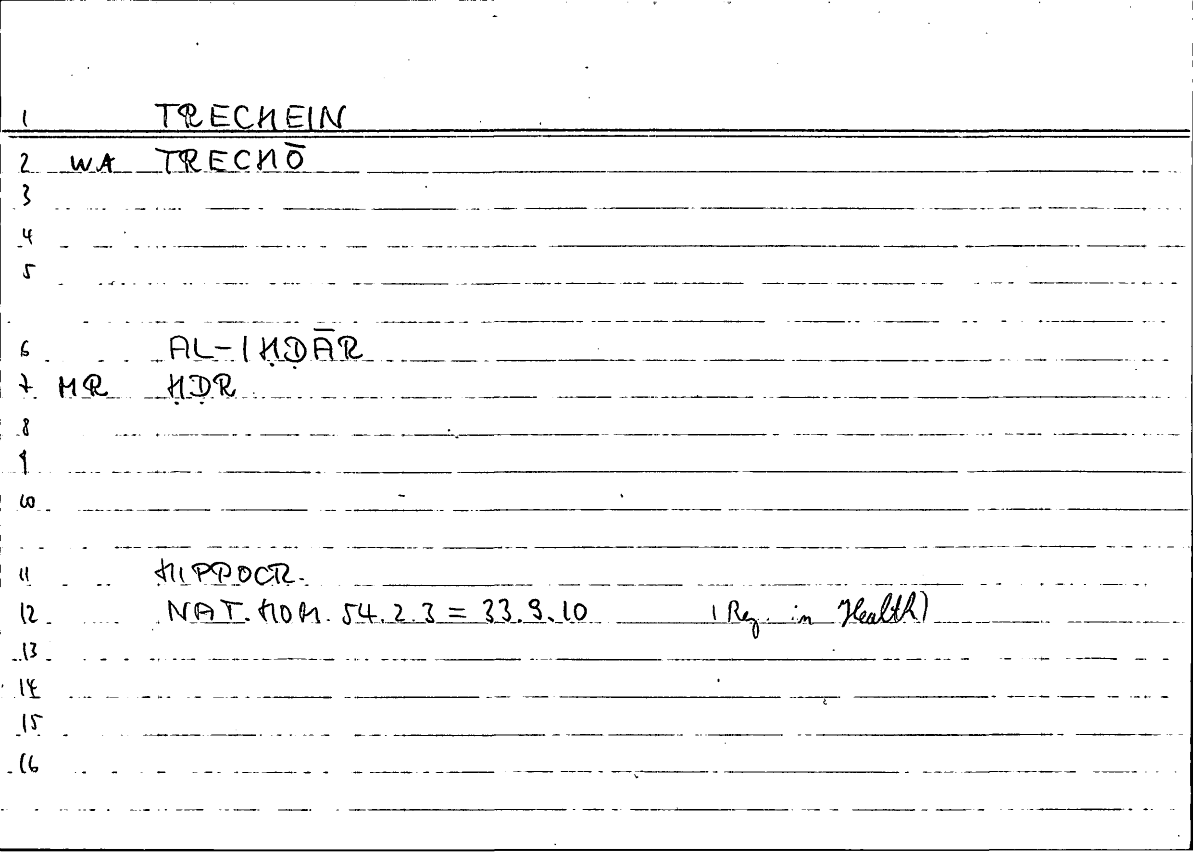 1 TRECHEIN
2 WA TRECHŌ
3
4
5
6 AL-IḤḌĀR
7 MR ḤḌR
8
9
10
11 HIPPOCR.
12 NAT. HOM. 54.2.3 = 33.9.10 (Reg. in Health)
13
14
15
16